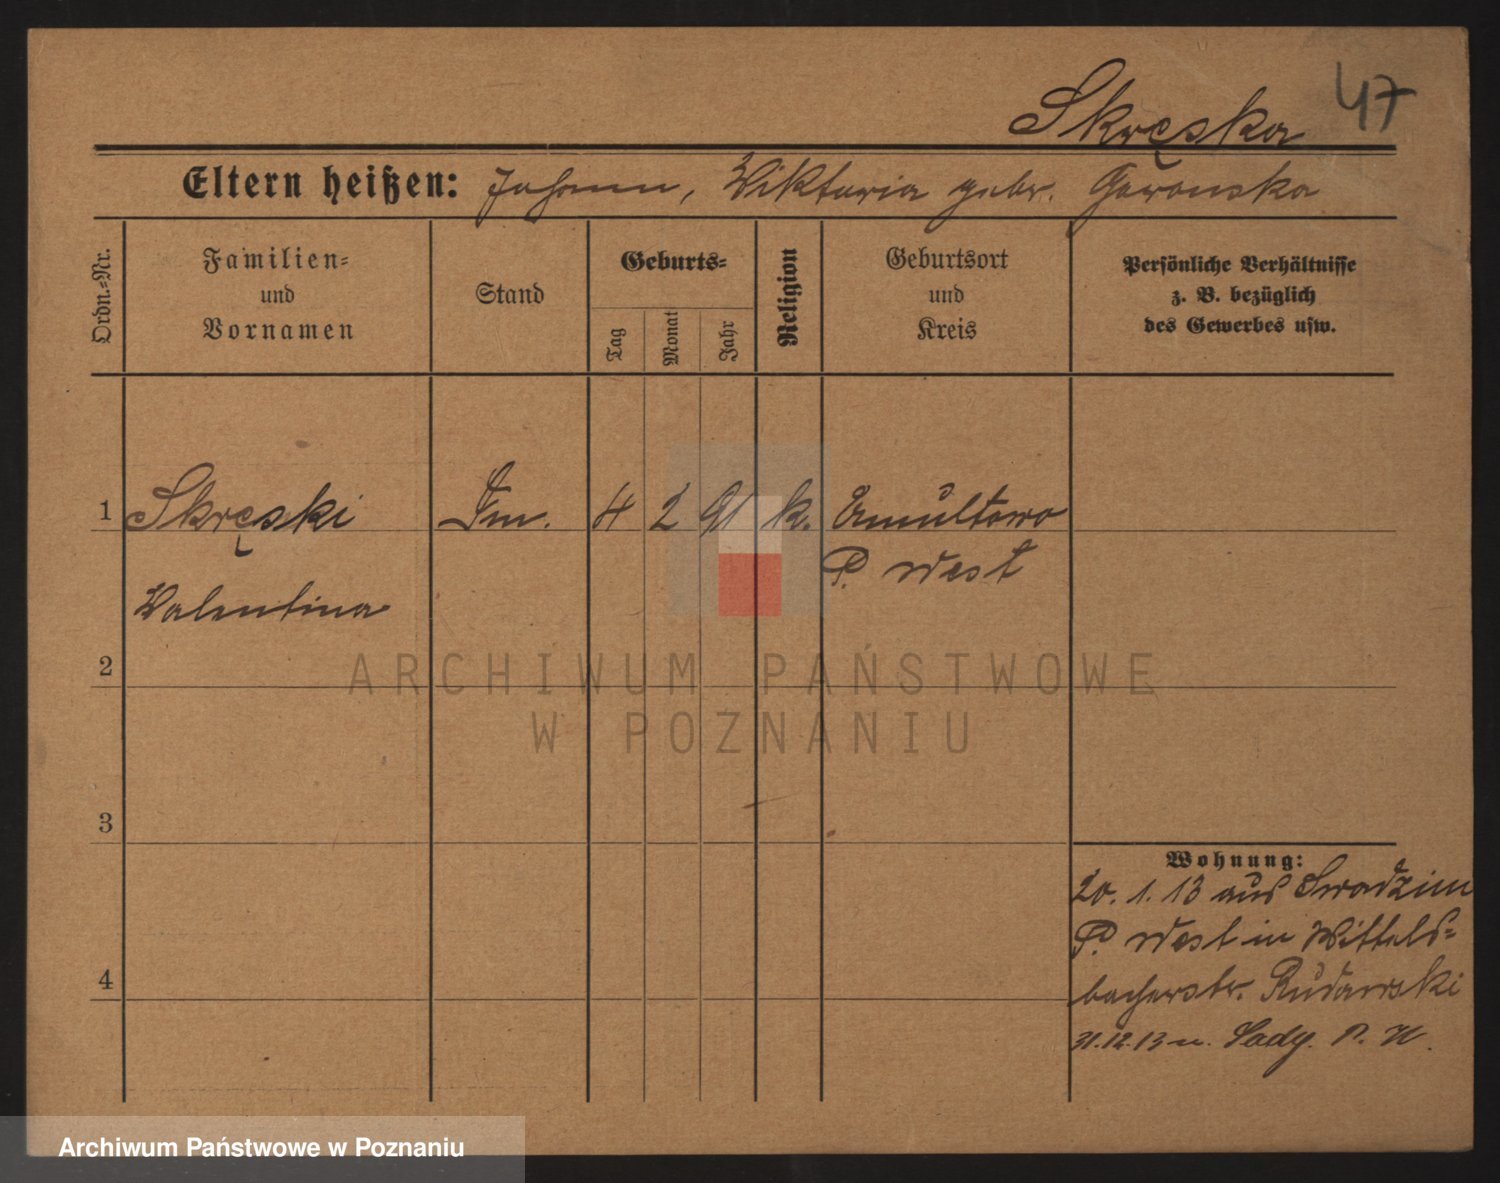 Skręska 47
Eltern heißen: Johann, Wiktoria gebr. Gawonska
Ordn.=Nr.
Familien=
und
Vornamen
Stand
Geburts=
Tag
Monat
Jahr
Religion
Geburtsort
und
Kreis
Persönliche Verhältnisse
z. B. bezüglich
des Gewerbes usw.
1 Skręski 4 2 91 k. Umultowo
P. West
Valentina
2
3
4
Wohnung:
20. 1. 13 aus Swadzim
P. West in Wittels=
bacherstr. Rudawski
31.12.13 n. Sady. P. W.
ARCHIWUM PAŃSTWOWE
W POZNANIU
Archiwum Państwowe w Poznaniu